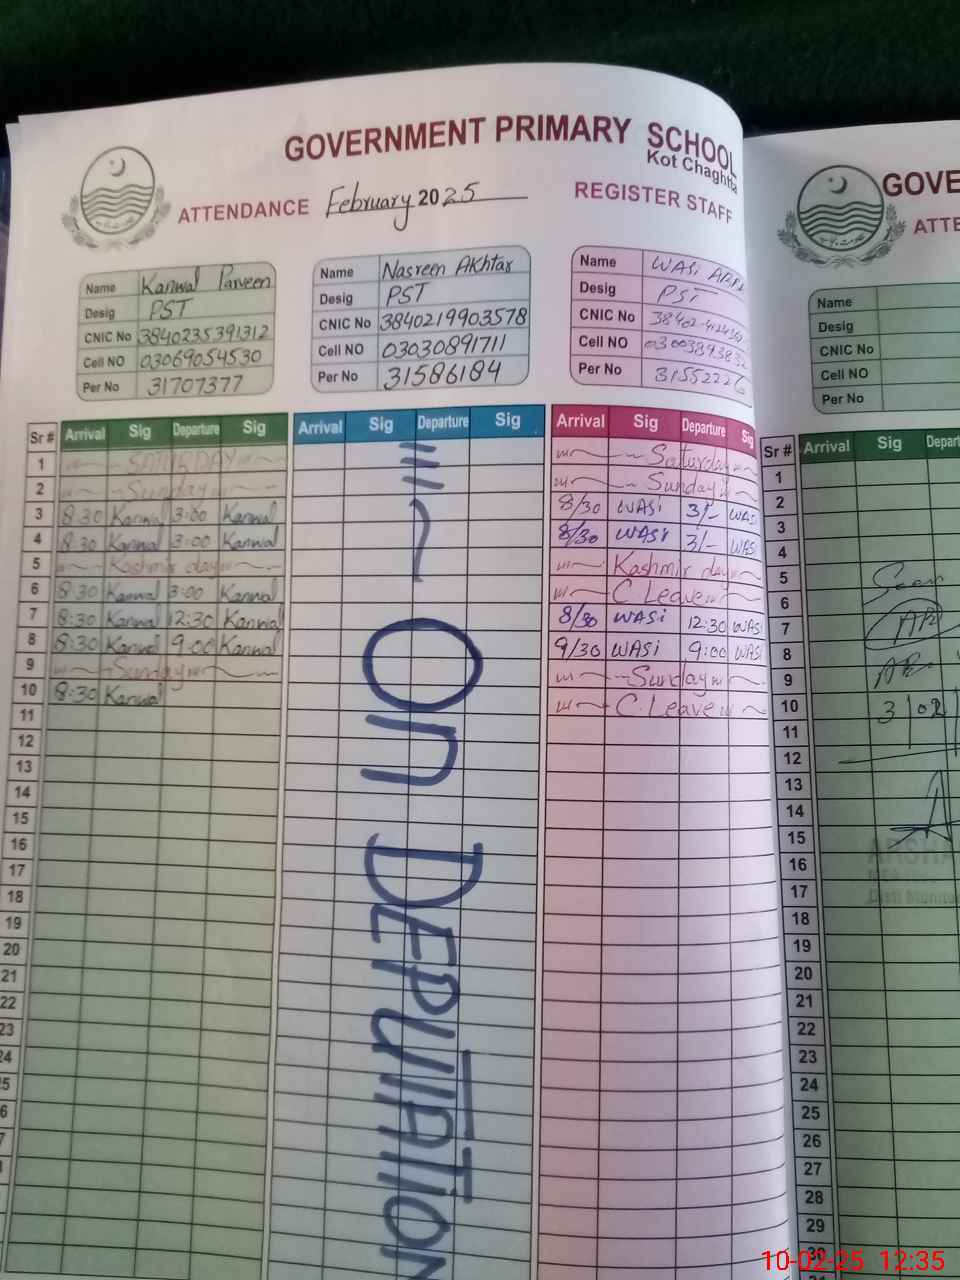 GOVERNMENT PRIMARY SCHOOL
Kot Chaghtta
ATTENDANCE February 2025 REGISTER STAFF
Name Kanwal Parveen
Desig PST
CNIC No 3840235391312
Cell NO 03069054530
Per No 31707377
Name Nasreen Akhtar
Desig PST
CNIC No 3840219903578
Cell NO 03030891711
Per No 31586184
Name WASi
Desig PST
CNIC No
Cell NO
Per No 31552226
Sr # Arrival Sig Departure Sig Arrival Sig Departure Sig Arrival Sig Departure Sig
1 SATURDAY Saturday
2 Sunday Sunday
3 8:30 Kanwal 3:00 Kanwal 8/30 WASi 3/- WASi
4 8:30 Kanwal 3:00 Kanwal 8/30 WASi 3/- WASi
5 Kashmir day Kashmir day
6 8:30 Kanwal 3:00 Kanwal C Leave
7 8:30 Kanwal 12:30 Kanwal 8/30 WASi 12:30 WASi
8 8:30 Kanwal 9:00 Kanwal 9/30 WASi 9:00 WASi
9 Sunday Sunday
10 8:30 Kanwal C. Leave
11
12
13
14
15
16
17
18
19
20
21
22
23
24
On DEPUTATION
GOVE
ATTE
Name
Desig
CNIC No
Cell NO
Per No
Sr # Arrival Sig Depart
1
2
3
4
5
6 Seen
7
8
9
10 3/02
11
12
13
14
15
16
17
18
19
20
21
22
23
24
25
26
27
28
29
30
10-02-25 12:35